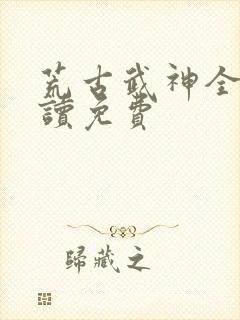 荒古武神全
讀免費
歸藏之